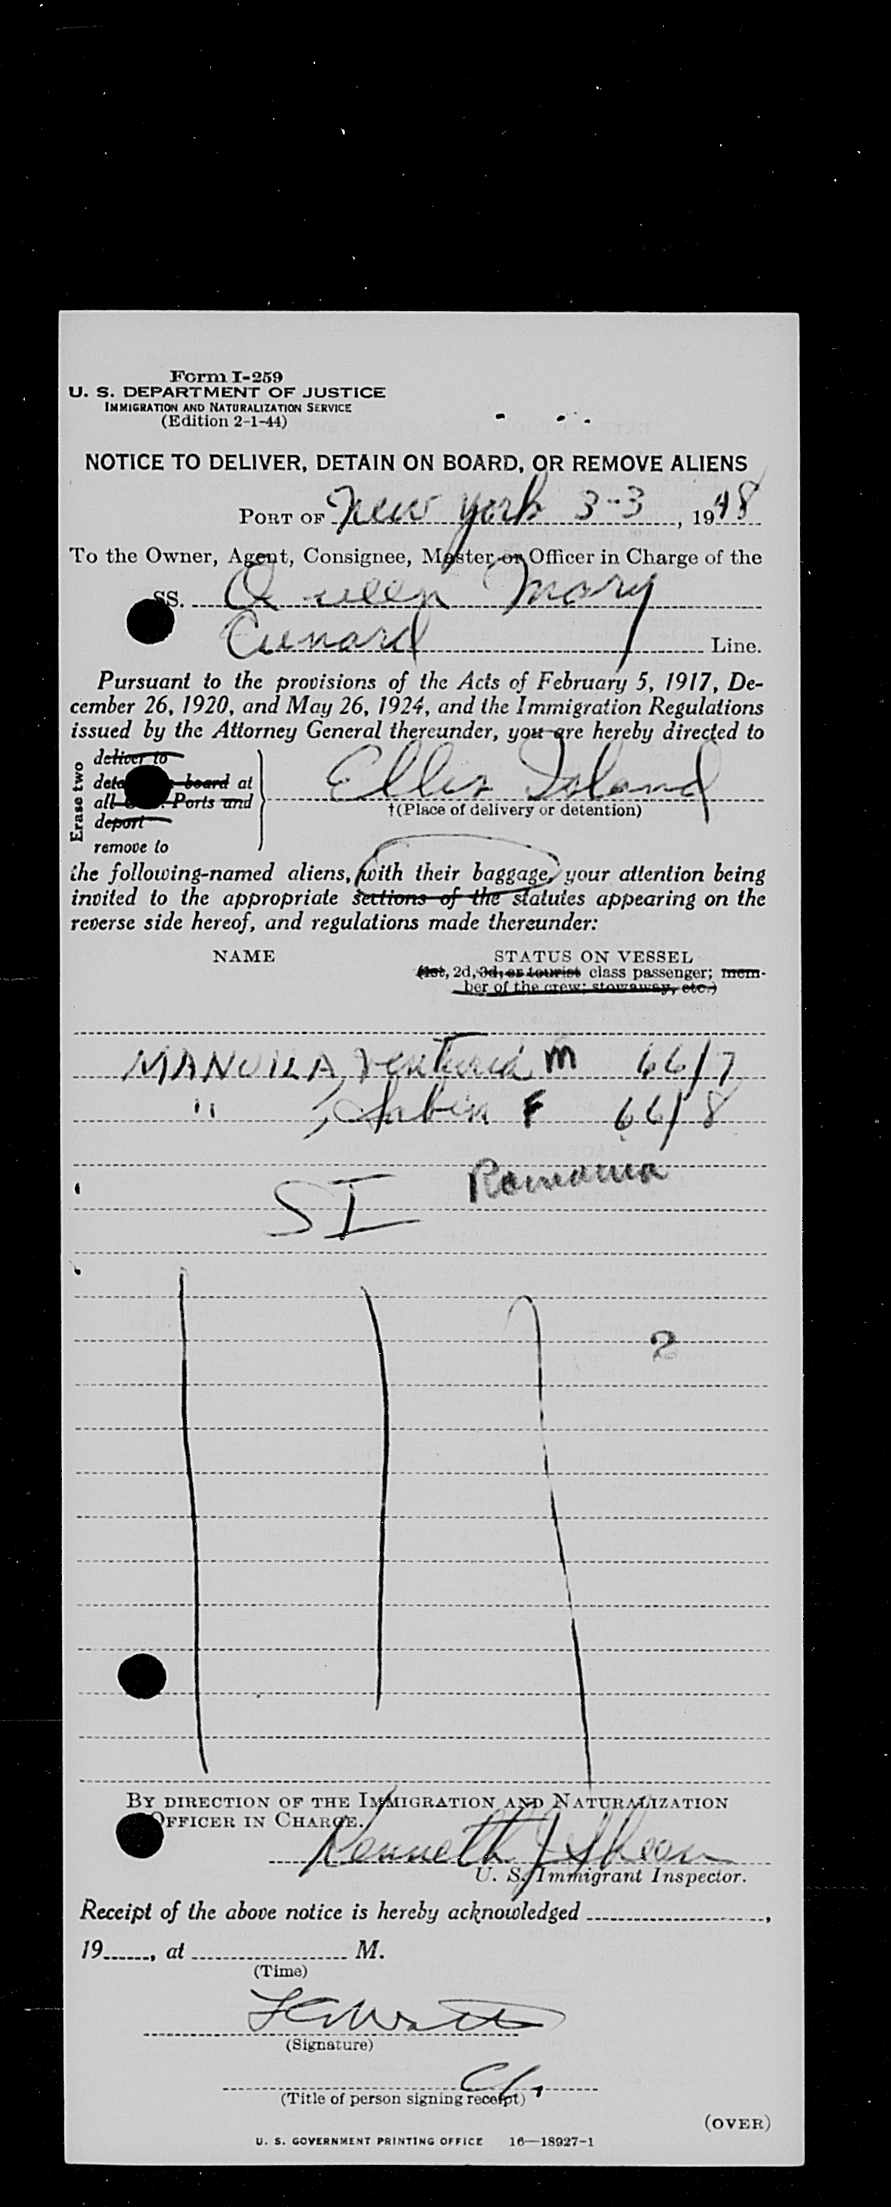 Form I-259
U. S. DEPARTMENT OF JUSTICE
IMMIGRATION AND NATURALIZATION SERVICE
(Edition 2-1-44)
NOTICE TO DELIVER, DETAIN ON BOARD, OR REMOVE ALIENS
PORT OF New York 3-3, 1948
To the Owner, Agent, Consignee, Master or Officer in Charge of the
SS. Queen Mary
Cunard Line.
Pursuant to the provisions of the Acts of February 5, 1917, De-
cember 26, 1920, and May 26, 1924, and the Immigration Regulations
issued by the Attorney General thereunder, you are hereby directed to
Erase two
deliver to
board at
all Ports and
deport
remove to
Ellis Island
†(Place of delivery or detention)
the following-named aliens, with their baggage, your attention being
invited to the appropriate sections of the statutes appearing on the
reverse side hereof, and regulations made thereunder:
NAME STATUS ON VESSEL
(1st, 2d, 3d, or tourist class passenger; mem-
ber of the crew; stowaway, etc.)
MANUILA, Ventura M 66/7
" , Sabin F 66/8
Romania
SI
2
BY DIRECTION OF THE IMMIGRATION AND NATURALIZATION
OFFICER IN CHARGE.
Kenneth J Shean
U. S. Immigrant Inspector.
Receipt of the above notice is hereby acknowledged ,
19 , at M.
(Time)
(Signature)
(Title of person signing receipt)
(OVER)
U. S. GOVERNMENT PRINTING OFFICE 16—18927-1